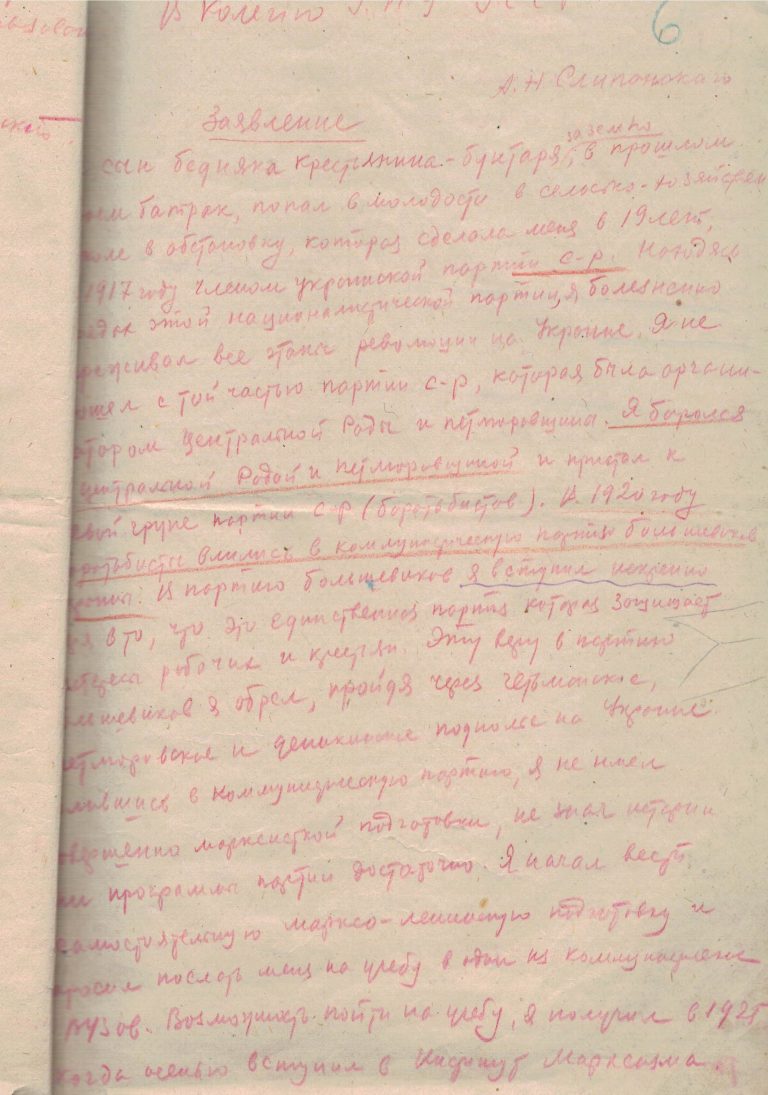 В Колегію Г.П.У. У.С.С.Р.
6
А. Н Слипонского
Заявление
за земпо
сын бедняка крестьянина-бунтаря, в прошлом
ем батрак, попал в молодости в селоско-хозяйствен
коле в обстановку, которая сделала меня в 19 лет,
1917 году членом украинской партии с-р. Находясь
рядах этой националистической партии, я болезненно
реживал все этапы революции на Украине. Я не
ошел с той частью партии с-р, которая была органи-
атором Центральной Рады и петлюровщины. Я боролся
центральной Радой и петлюровщиной и пристал к
евой групе партии с-р (боротьбистов). В 1920 году
оротьбисты влились в коммунистическую партию большевиков
краины. В партию большевиков я вступил искренно
ря в то, что это единственная партия которая защищает
тересы рабочих и крестьян. Эту веру в партию
льшевиков я обрел, пройдя через гетьманское,
етлюровское и деникинское подполье на Украине.
лившись в коммунистическую партию, я не имел
овершенно марксисткой подготовки, не знал истории
ни программы партии достаточно. Я начал вести
самостоятельную марксо-ленинскую подготовку и
просил послать меня на учебу в один из коммунистических
ВУЗов. Возможность пойти на учебу, я получил в 1925
когда осенью вступил в Институт Марксизма.